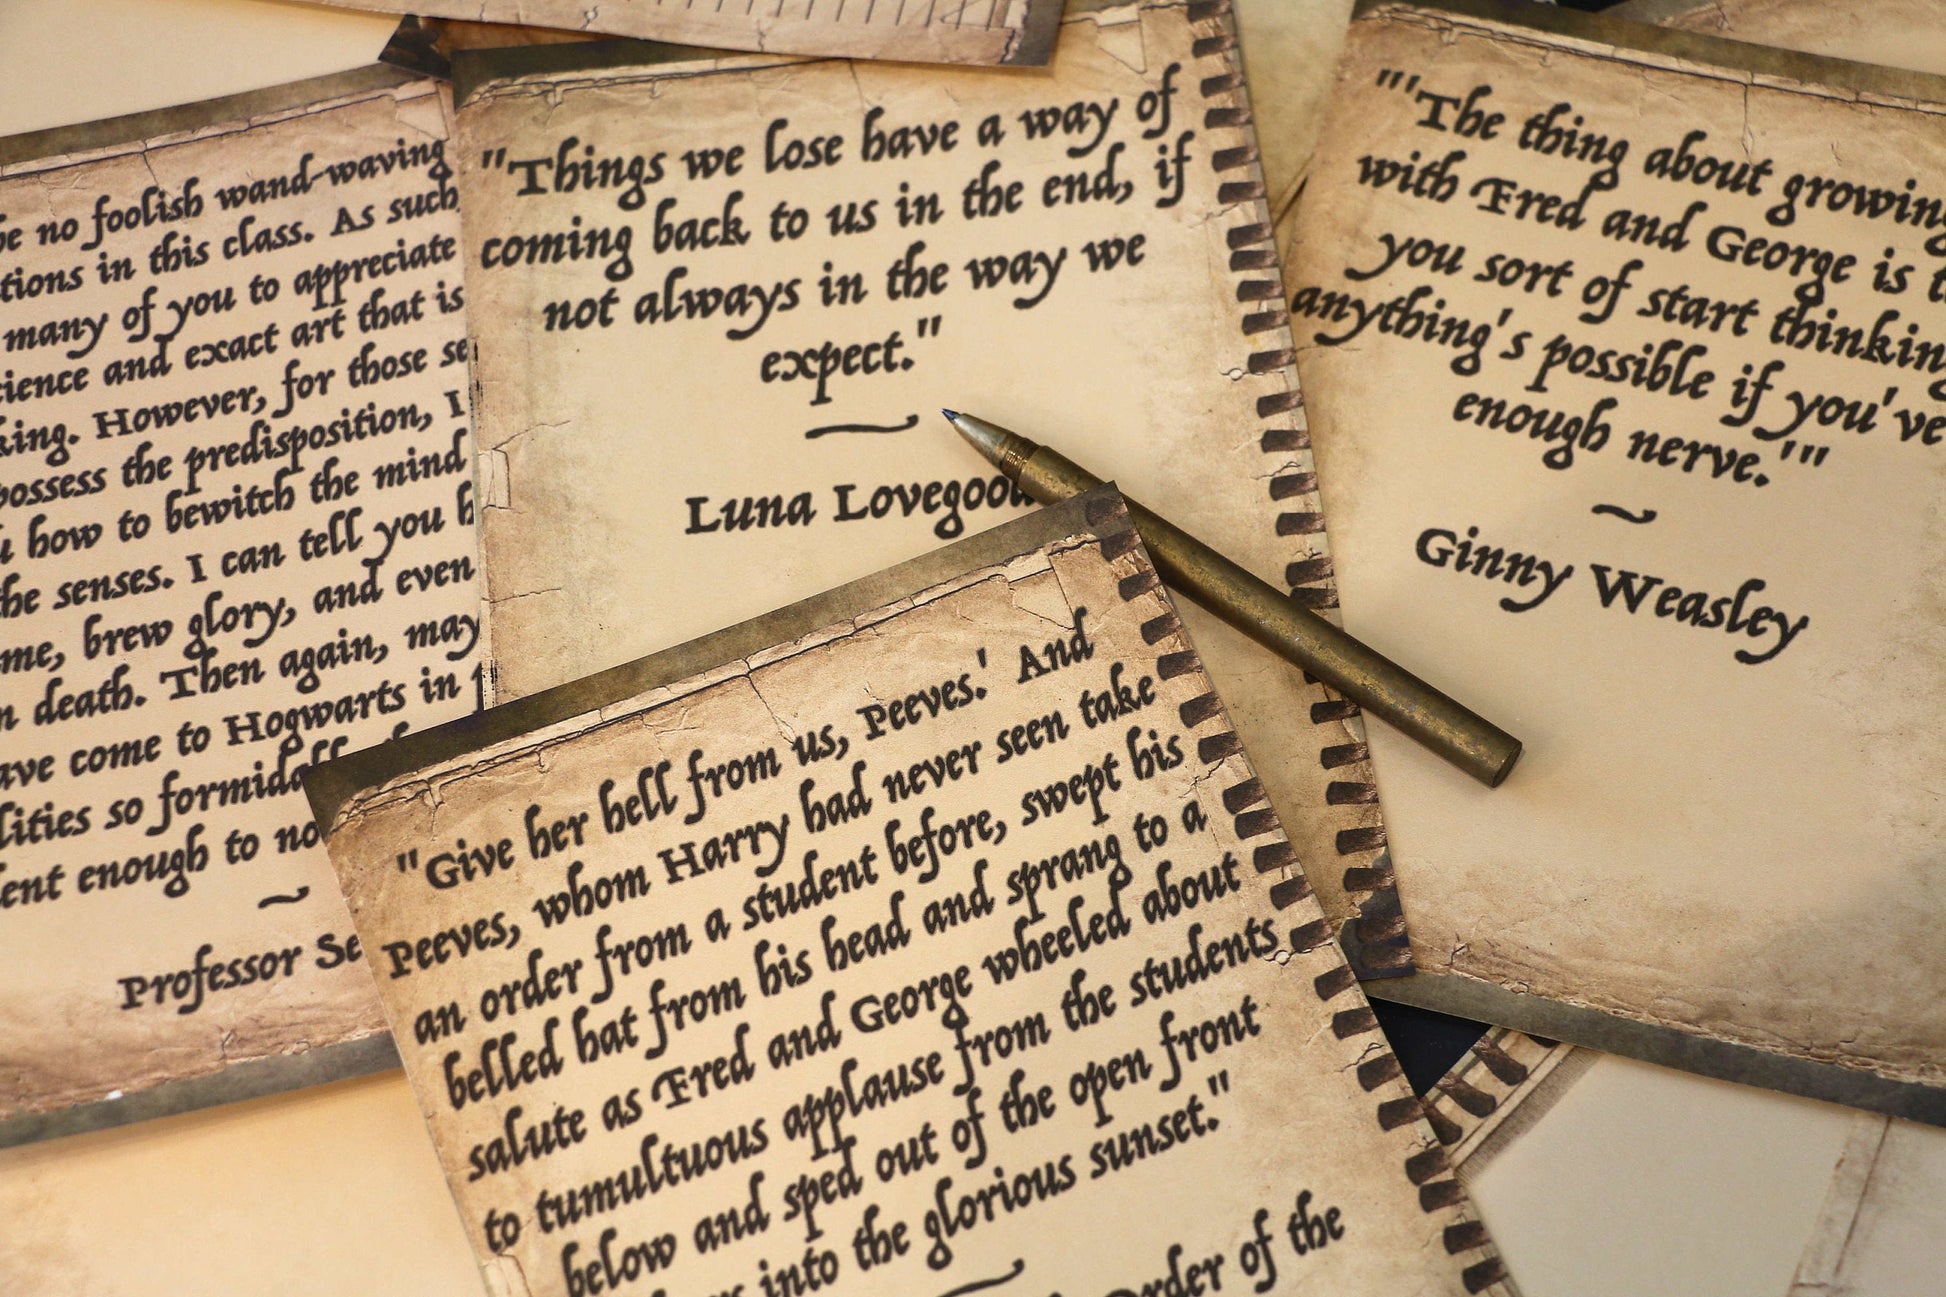 no foolish wand-waving
in this class. As such
many of you to appreciate
and exact art that is
However, for those
possess the predisposition, I
how to bewitch the mind
the senses. I can tell you
brew glory, and even
death. Then again, may
come to Hogwarts in
so
enough to
~
Professor
"Things we lose have a way of
coming back to us in the end, if
not always in the way we
expect."
~
Luna Lovegood
"'The thing about growing
with Fred and George is
you sort of start thinking
anything's possible if you've
enough nerve.'"
~
Ginny Weasley
"Give her hell from us, Peeves.' And
Peeves, whom Harry had never seen take
an order from a student before, swept his
belled hat from his head and sprang to a
salute as Fred and George wheeled about
to tumultuous applause from the students
below and sped out of the open front
into the glorious sunset."
~
Order of the